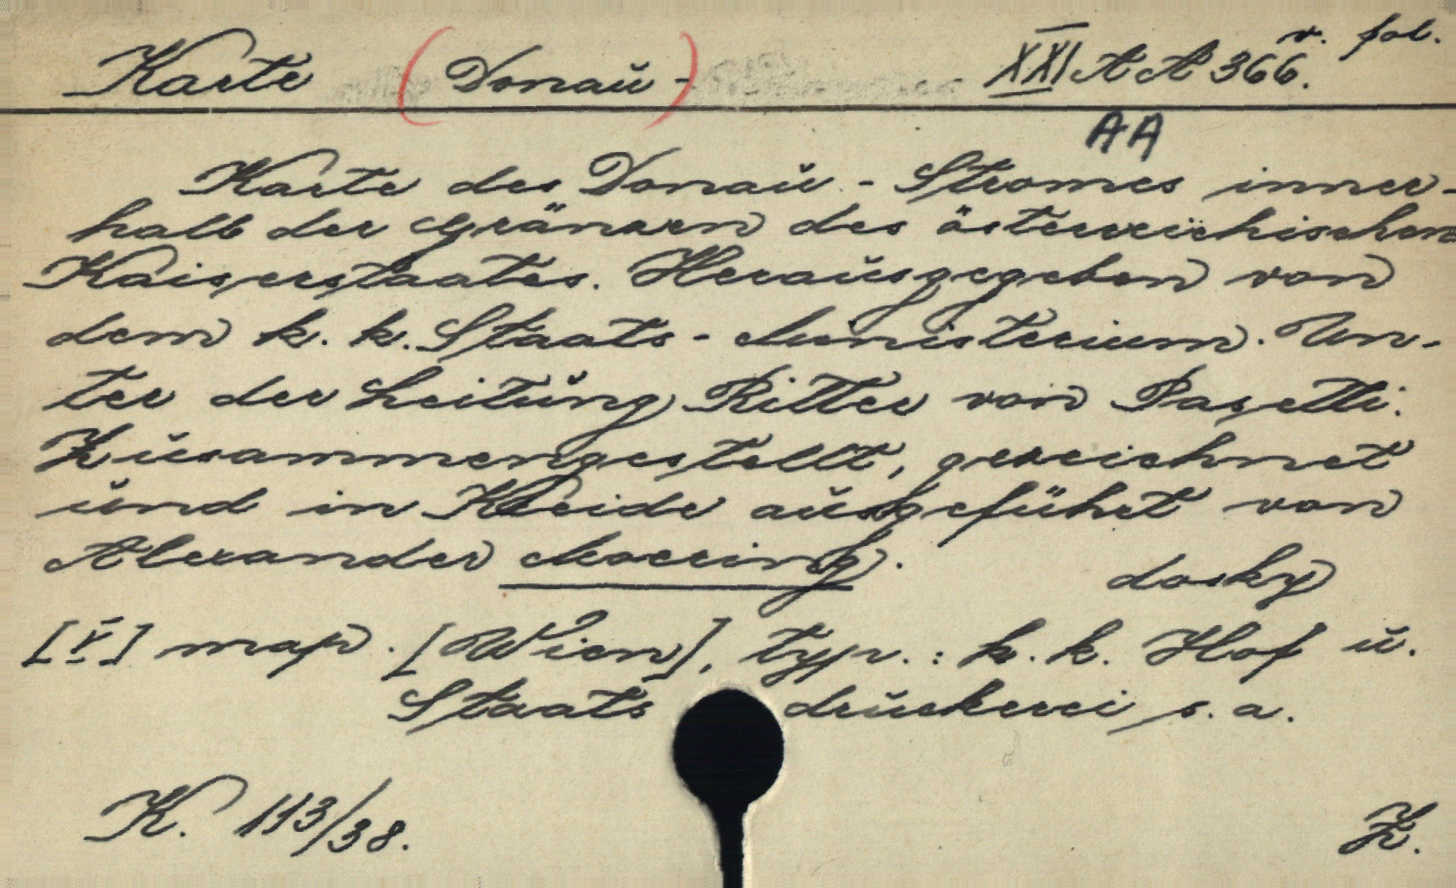 Karte (Donau-) XXI AA 366. v. fol.
AA
Karte des Donau-Stromes inner-
halb der Gränzen des österreichischen
Kaiserstaates. Herausgegeben von
dem k. k. Staats-Ministerium. Un-
ter der Leitung Ritter von Pasetti.
Zusammengestellt, gezeichnet
und in Kreide ausgeführt von
Alexander Moering. dosky
[V] map. [Wien], typ.: k. k. Hof u.
Staats druckerei s. a.
K. 113/38. Z.